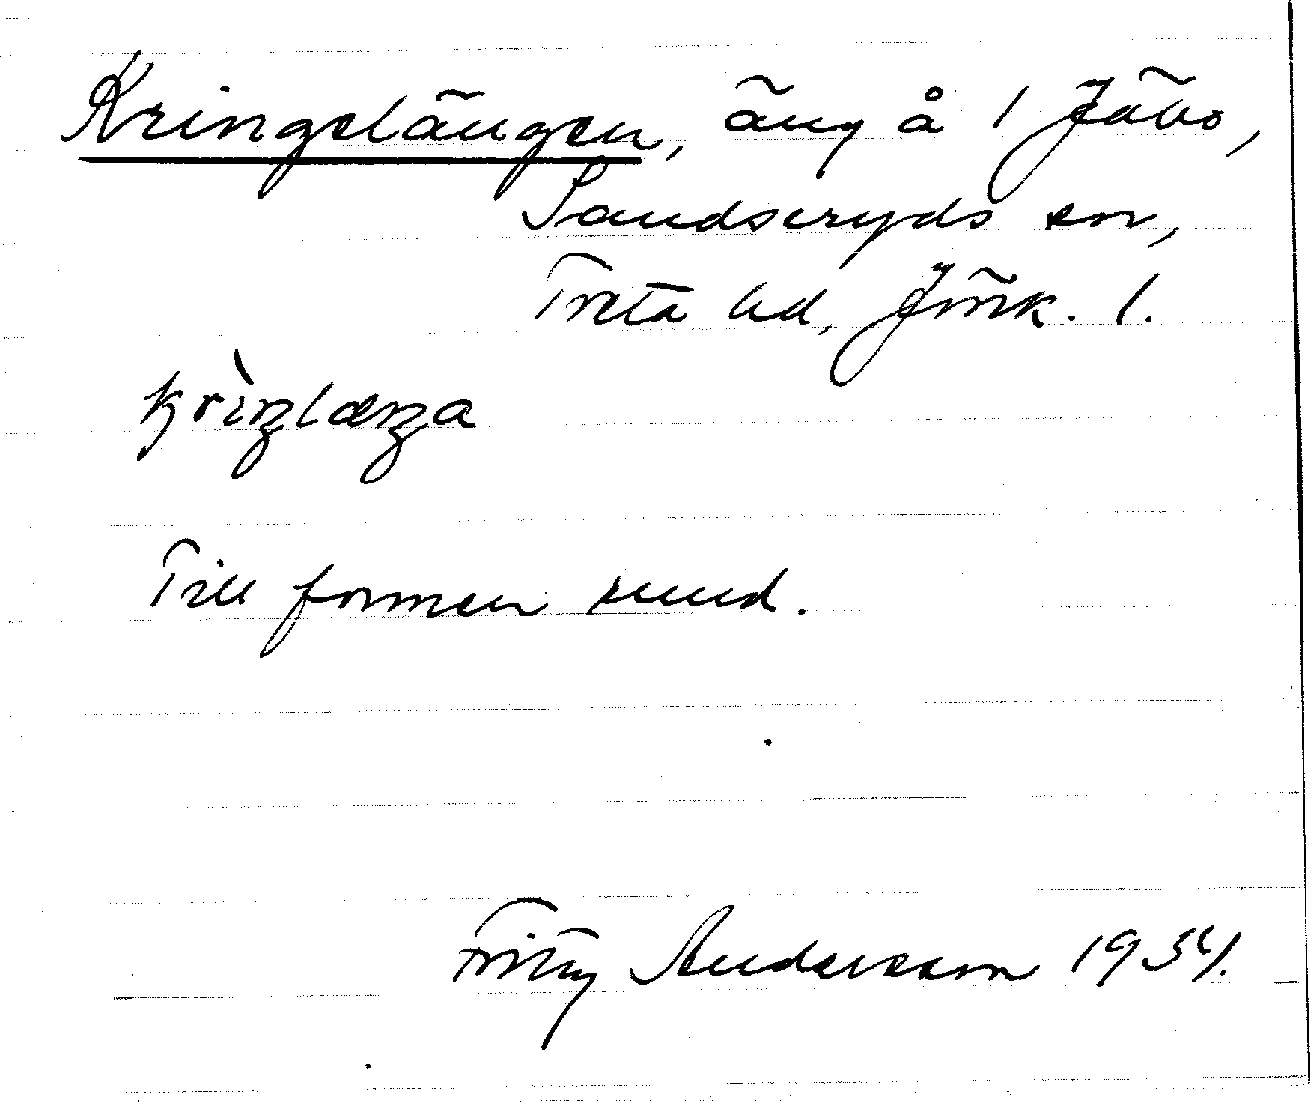 Kringelängen, äng å 1 Jäbo,
Sandseryds sn,
Tveta hd, Jönk. l.
krìŋlæŋa
Till formen rund.
Fritz Andersson 1934.